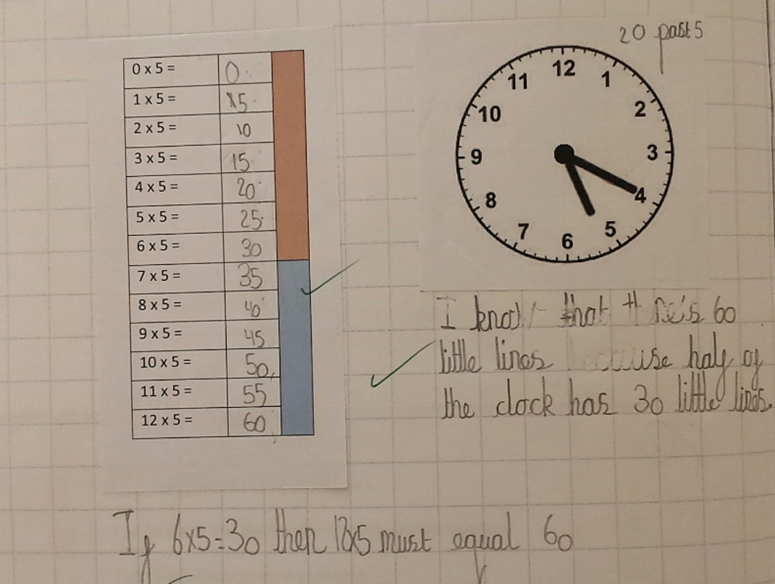 0 x 5 = 0
1 x 5 = 5
2 x 5 = 10
3 x 5 = 15
4 x 5 = 20
5 x 5 = 25
6 x 5 = 30
7 x 5 = 35
8 x 5 = 40
9 x 5 = 45
10 x 5 = 50
11 x 5 = 55
12 x 5 = 60
20 past 5
12
1
2
3
4
5
6
7
8
9
10
11
I know that there's 60
little lines because half of
the clock has 30 little lines.
If 6x5=30 then 12x5 must equal 60